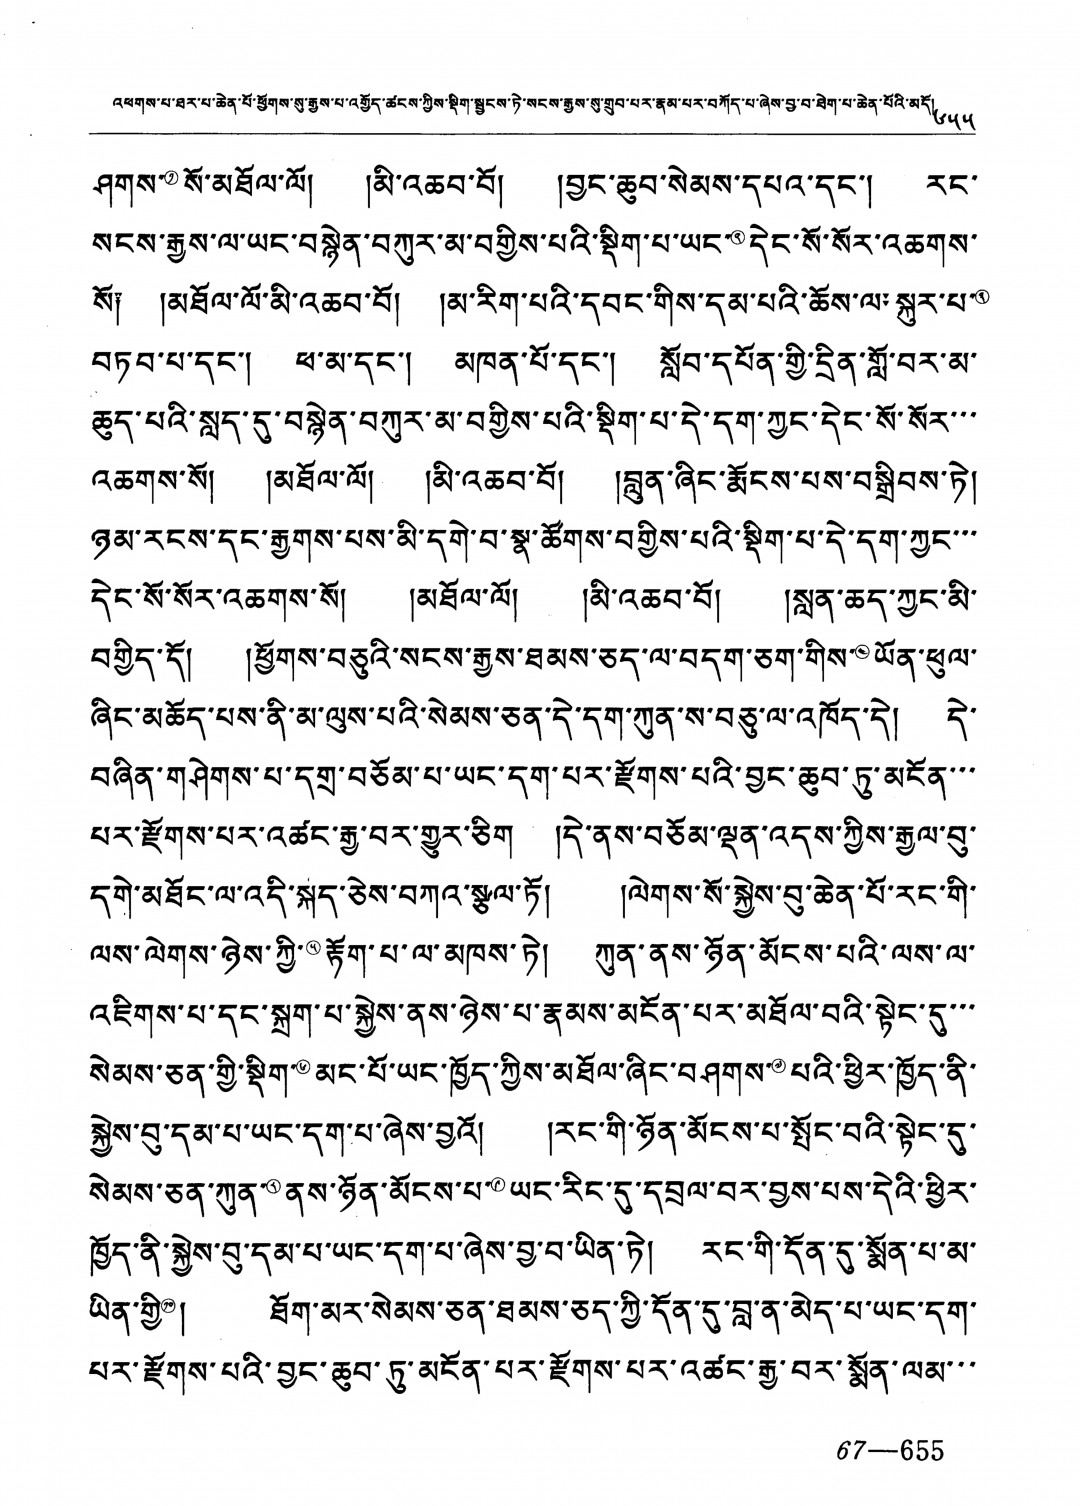 འཕགས་པ་ཐར་པ་ཆེན་པོ་ཕྱོགས་སུ་རྒྱས་པ་འགྱོད་ཚངས་ཀྱིས་སྡིག་སྦྱངས་ཏེ་སངས་རྒྱས་སུ་གྲུབ་པར་རྣམ་པར་བཀོད་པ་ཞེས་བྱ་བ་ཐེག་པ་ཆེན་པོའི་མདོ། ༦༥༥
ཤགས་① སོ་མཐོལ་ལོ། །མི་འཆབ་བོ། །བྱང་ཆུབ་སེམས་དཔའ་དང་། རང་
སངས་རྒྱས་ལ་ཡང་བསྙེན་བཀུར་མ་བགྱིས་པའི་སྡིག་པ་ཡང་② དེང་སོ་སོར་འཆགས་
སོ༑ །མཐོལ་ལོ་མི་འཆབ་བོ། །མ་རིག་པའི་དབང་གིས་དམ་པའི་ཆོས་ལ་སྐུར་པ་③
བཏབ་པ་དང་། ཕ་མ་དང་། མཁན་པོ་དང་། སློབ་དཔོན་གྱི་དྲིན་གློ་བར་མ་
ཆུད་པའི་སླད་དུ་བསྙེན་བཀུར་མ་བགྱིས་པའི་སྡིག་པ་དེ་དག་ཀྱང་དེང་སོ་སོར་⋯
འཆགས་སོ། །མཐོལ་ལོ། །མི་འཆབ་བོ། །བླུན་ཞིང་རྨོངས་པས་བསྒྲིབས་ཏེ།
ཉམ་རངས་དང་རྒྱགས་པས་མི་དགེ་བ་སྣ་ཚོགས་བགྱིས་པའི་སྡིག་པ་དེ་དག་ཀྱང་⋯
དེང་སོ་སོར་འཆགས་སོ། །མཐོལ་ལོ། །མི་འཆབ་བོ། །སླན་ཆད་ཀྱང་མི་
བགྱིད་དོ། །ཕྱོགས་བཅུའི་སངས་རྒྱས་ཐམས་ཅད་ལ་བདག་ཅག་གིས་④ ཡོན་ཕུལ་
ཞིང་མཆོད་པས་ནི་མ་ལུས་པའི་སེམས་ཅན་དེ་དག་ཀུན་ས་བཅུ་ལ་འཁོད་དེ། དེ་
བཞིན་གཤེགས་པ་དགྲ་བཅོམ་པ་ཡང་དག་པར་རྫོགས་པའི་བྱང་ཆུབ་ཏུ་མངོན་⋯
པར་རྫོགས་པར་འཚང་རྒྱ་བར་གྱུར་ཅིག །དེ་ནས་བཅོམ་ལྡན་འདས་ཀྱིས་རྒྱལ་བུ་
དགེ་མཐོང་ལ་འདི་སྐད་ཅེས་བཀའ་སྩལ་ཏོ། །ལེགས་སོ་སྐྱེས་བུ་ཆེན་པོ་རང་གི་
ལས་ལེགས་ཉེས་ཀྱི་⑤ རྟོག་པ་ལ་མཁས་ཏེ། ཀུན་ནས་ཉོན་མོངས་པའི་ལས་ལ་
འཇིགས་པ་དང་སྐྲག་པ་སྐྱེས་ནས་ཉེས་པ་རྣམས་མངོན་པར་མཐོལ་བའི་སྟེང་དུ་⋯
སེམས་ཅན་གྱི་སྡིག་⑥ མང་པོ་ཡང་ཁྱོད་ཀྱིས་མཐོལ་ཞིང་བཤགས་⑦ པའི་ཕྱིར་ཁྱོད་ནི་
སྐྱེས་བུ་དམ་པ་ཡང་དག་པ་ཞེས་བྱའོ། །རང་གི་ཉོན་མོངས་པ་སྤོང་བའི་སྟེང་དུ་
སེམས་ཅན་ཀུན་⑧ ནས་ཉོན་མོངས་པ་⑨ ཡང་རིང་དུ་དབྲལ་བར་བྱས་པས་དེའི་ཕྱིར་
ཁྱོད་ནི་སྐྱེས་བུ་དམ་པ་ཡང་དག་པ་ཞེས་བྱ་བ་ཡིན་ཏེ། རང་གི་དོན་དུ་སྨོན་པ་མ་
ཡིན་གྱི་⑩། ཐོག་མར་སེམས་ཅན་ཐམས་ཅད་ཀྱི་དོན་དུ་བླ་ན་མེད་པ་ཡང་དག་
པར་རྫོགས་པའི་བྱང་ཆུབ་ཏུ་མངོན་པར་རྫོགས་པར་འཚང་རྒྱ་བར་སྨོན་ལམ་⋯
67—655